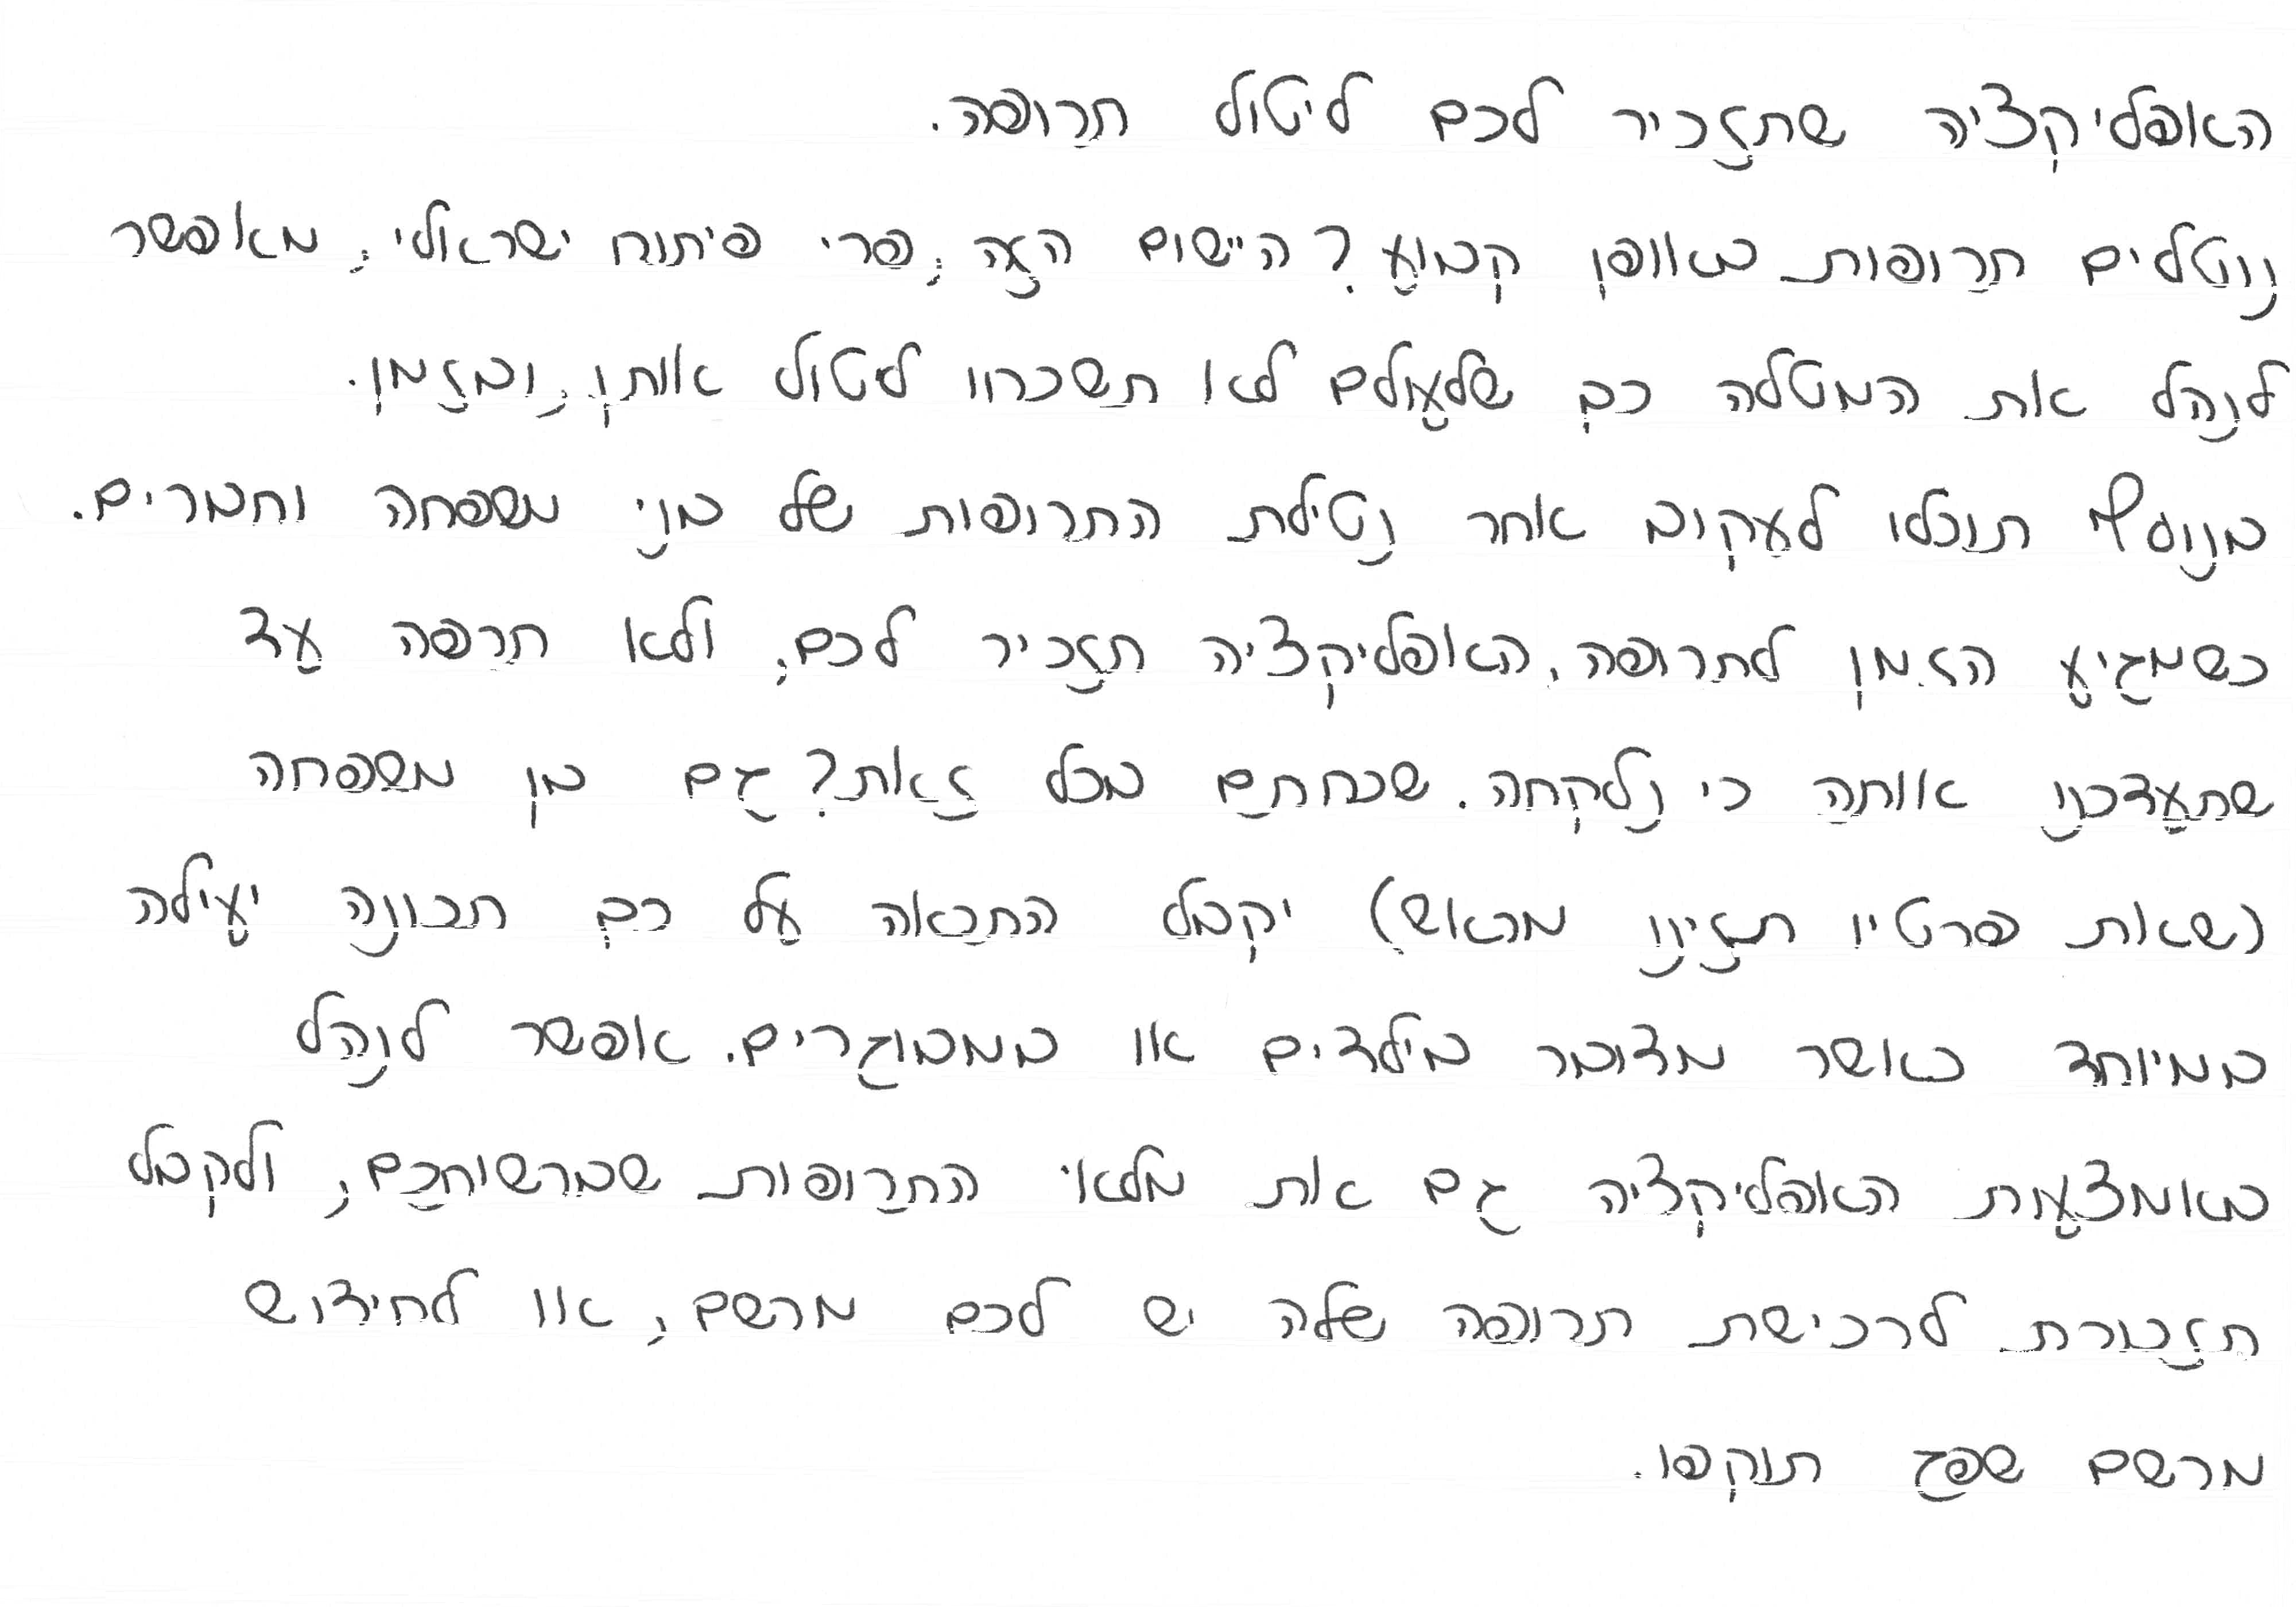 האפליקציה שתזכיר לכם ליטול תרופה.
נוטלים תרופות באופן קבוע? היישום הזה, פרי פיתוח ישראלי, מאפשר
לנהל את המטלה כך שלעולם לא תשכחו ליטול אותן, ובזמן.
בנוסף תוכלו לעקוב אחר נטילת התרופות של בני משפחה וחברים.
כשמגיע הזמן לתרופה, האפליקציה תזכיר לכם, ולא תרפה עד
שתעדכנו אותה כי נלקחה. שכחתם בכל זאת? גם בן משפחה
(שאת פרטיו תזינו מראש) יקבל התראה על כך תכונה יעילה
במיוחד כאשר מדובר בילדים או במבוגרים. אפשר לנהל
באמצעות האפליקציה גם את מלאי התרופות שברשותכם, ולקבל
תזכורת לרכישת תרופה שלה יש לכם מרשם, או לחידוש
מרשם שפג תוקפו.